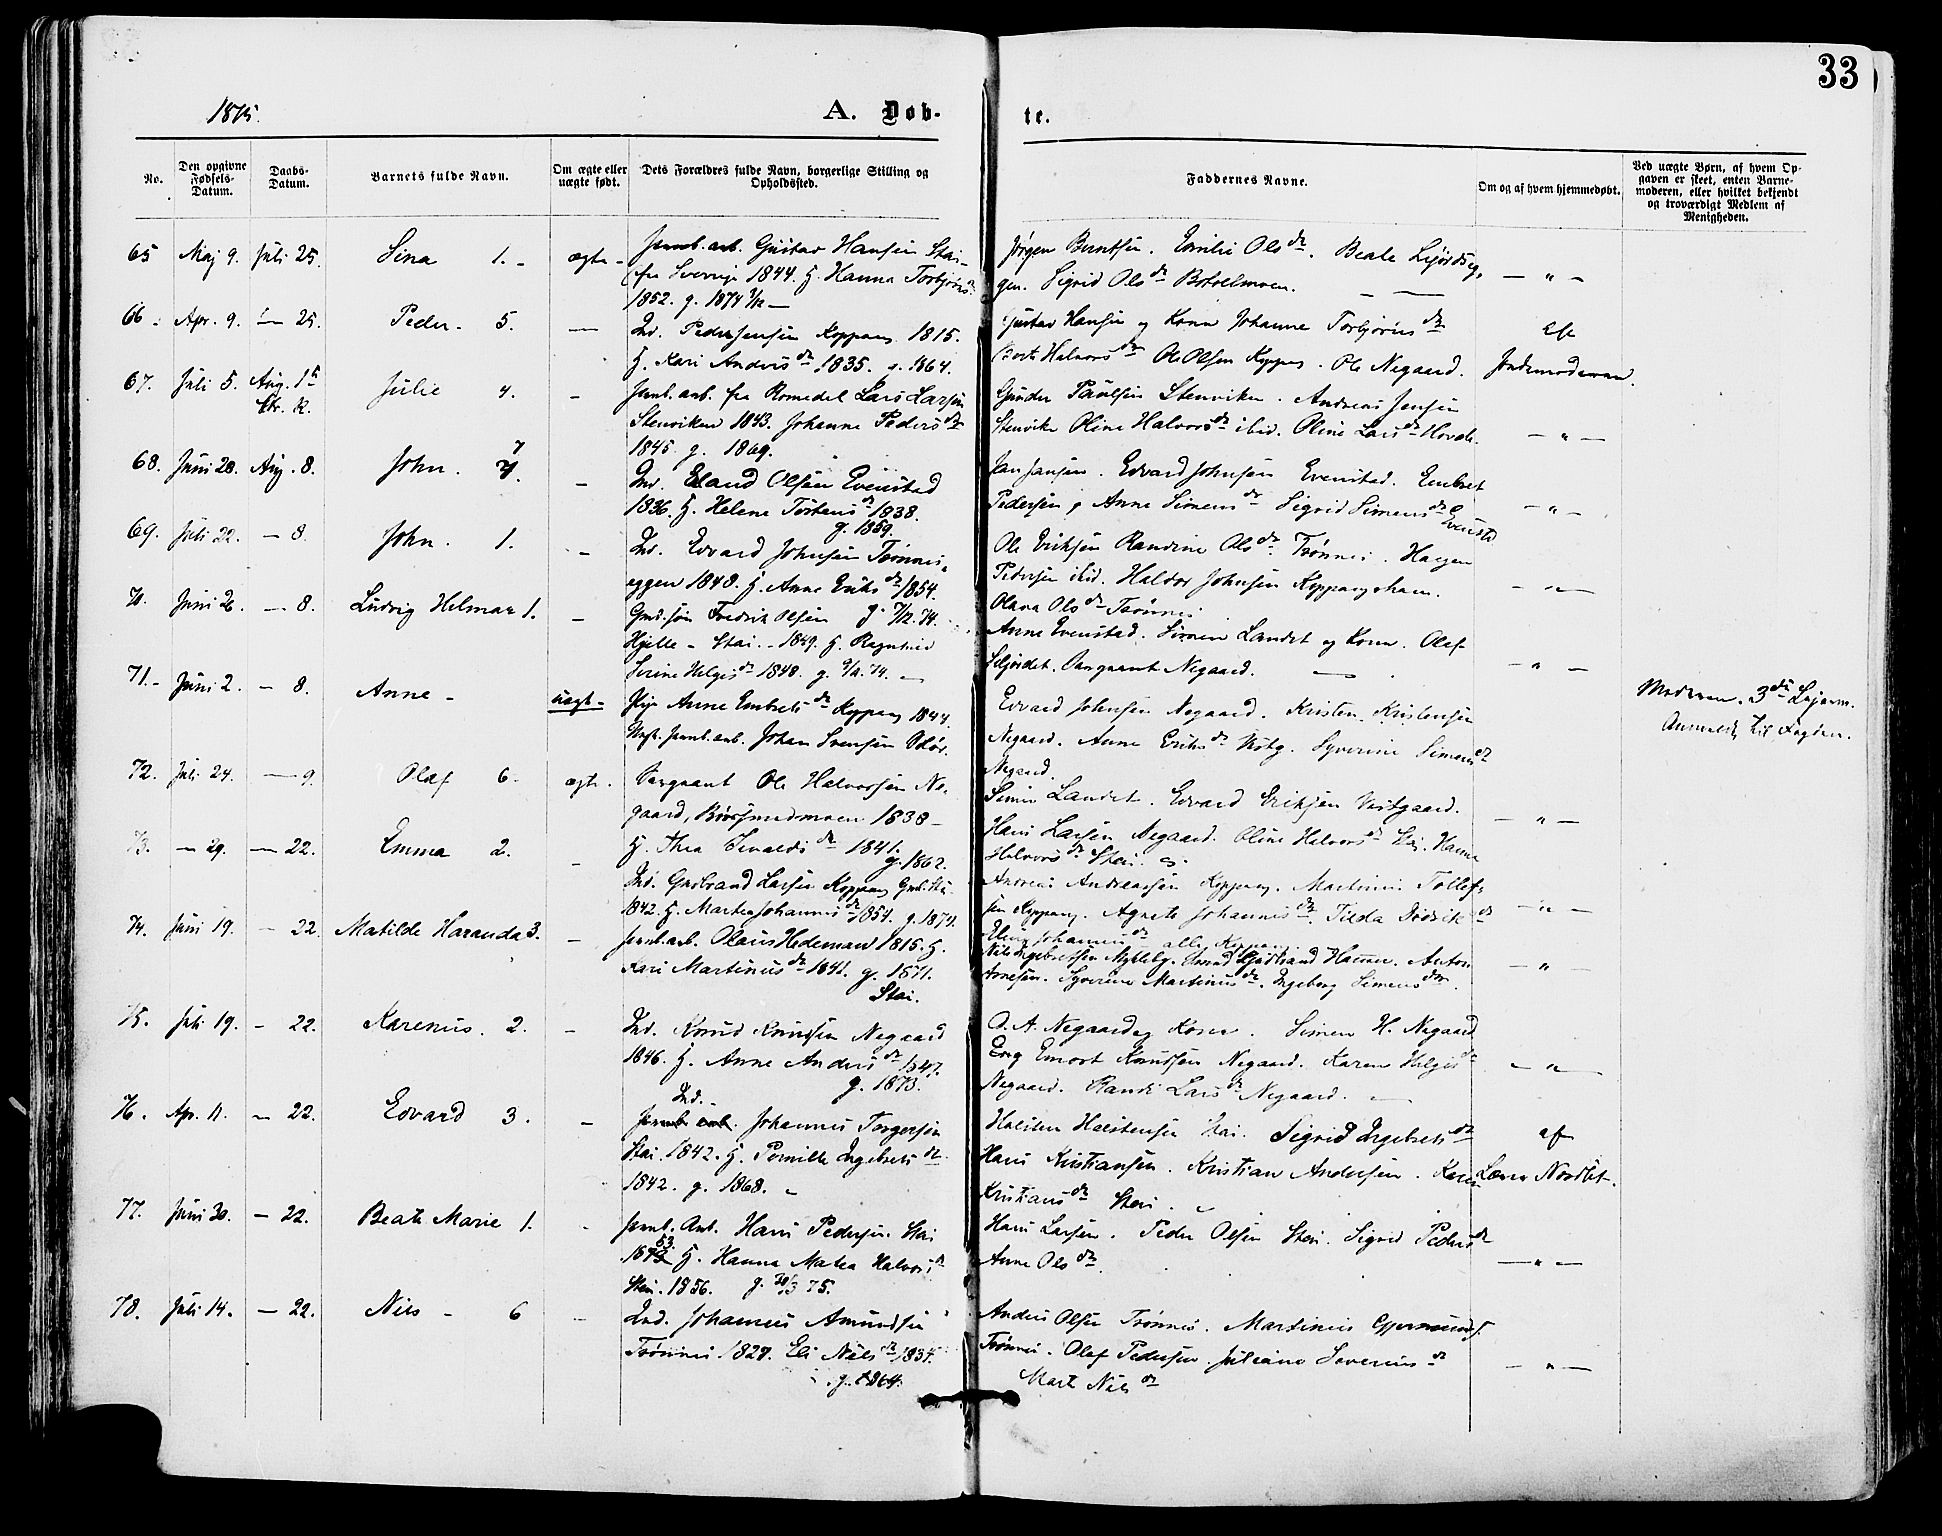 33
1875.
A. Døb-
te.
No.
Den opgivne Fødsels-Datum.
Daabs-Datum.
Barnets fulde Navn.
Om ægte eller uægte født.
Dets Forældres fulde Navn, borgerlige Stilling og Opholdssted.
Faddernes Navne.
Om og af hvem hjemmedøbt.
Ved uægte Børn, af hvem Opgaven er skeet, enten Barnemoderen, eller hvilket bekjendt og troværdigt Medlem af Menigheden.
65 Maj 9. Juli 25. Sina 1. - ægte - Jernb. arb. Gustav Hansen Stai -
fra Sverrige 1844. H. Hanna Torbjørns
1852. g. 1874
Jørgen Berntsen. Emilie Olsdr. Beate
Sigrid Olsdr — " —
66. Apr. 9. — 25. Peder. 5. — Ind. Peder Jensen Koppang 1815.
H. Kari Andersdr 1835. g. 1864.
Gustav Hansen og Kone Johanne Torbjørnsdr af
Halvorsdr Ole Olsen Koppang. Ole Negaard. Jordemoderen.
67. Juli 5. Aug. 1 Julie 4. - Jernb. arb. fra Romedal Lars Larsen
Stenviken 1843. Johanne Pedersdr
1845. g. 1869.
Gunder Paulsen Stenviken. Andreas Jensen
Stenvike Oline Halvorsdr ibid. Oline Larsdr — " —
68. Juni 28. Aug. 8. John. 7. - Ind. Eland Olsen Evenstad
1836. H. Helene Torstensdr 1838.
g. 1859.
Jan Jansen. Edvard Johnsen Evenstad. Embret
Pedersen og Anne Simensdr Sigrid Simensdr Evensta — " —
69. Juli 22. — 8. John. 1. - Ind. Edvard Johnsen Trønnes-
eggen 1848. H. Anne Eriksdr 1854.
g. 7/12. 74.
Ole Eriksen Randine Olsdr Trønnes. Haagen
Pedersen ibid. Haldor Johnsen
Olava Olsdr Trønnes. — " —
70. Juni 26. — 8. Ludvig Helmar 1. - Gmd. søn Fredrik Olsen
Hjelle - Stai. - 1849. H. Ragnhild
Serine Helgesdr 1848. g. 74.
Anne Evenstad. Simen Landet og Kone. Olaf
Sergeant Negaard. — " —
71. - Juni 2. — 8. Anne - uægt - Pige Anne Embretsdr Koppang 1844.
Jernb. arb. Johan Svensen
Edvard Johnsen Negaard. Kristen Kristensen
Negaard. Anne Eriksdr Syverine Simensdr
Negaard.
Moderen. 3die
Anmeldt til Fogden.
72. Juli 24. — 9. Olaf 6. ægte. Sergeant Ole Halvorsen Ne-
gaard, 1838 -
H. Thea Sivaldsdr 1841.
g. 1862.
Simen Landet. Edvard Eriksen Vestgaard.
Hans Larsen Negaard. Oline Halvorsdr Stai. Hanna
Halvorsdr Stai. — " —
73. — 29. — 22. Emma 2. - Ind. Gudbrand Larsen Koppang
1842. H. Marthea Johannesdr 1854. g. 1874.
Andreas Andreassen Koppang. Martinus Tollef-
sen Koppang. Agnete Johannesdr. Tilda
Johannesdr alle Koppang — " —
74. Juni 19. — 22. Matilde Haranda 3. - Jernb. arb. Olaus Hedeman 1815. H.
Kari Martinusdr 1841. g. 1871.
Stai.
Nils Ingebretsen Myklebg. Anton
Arnesen. Syverine Martinusdr. Ingeborg Simensdtr. — " —
75. Juli 19. — 22. Karenus. 2. - Ind. Knud Knudsen Negaard
1846. H. Anne Andersdr 1847.
g. 1873.
O. A. Negaard og Kone. Simen H. Negaard
Knudsen Negaard. Karen Helgesdr
Negaard. Randi Larsdr Negaard. — " —
76. Ap. 11. — 22. Edvard 3. - Ind.
Jernb. arb. Johannes Torgersen
Stai. 1842. H. Pernille Ingebretsdr
1842. g. 1868.
Halsten Halstensen Stai. Sigrid Ingebretsdr af
Hans Kristiansen. Kristian Andersen. Karen Lærer Nordlit.
Kristiansdr Stai.
77. Juni 30. — 22. Beate Marie 1. - Jernb. Arb. Hans Pedersen. Stai
1853 H. Hanna Matea Halvorsdr
Stai. 1856. g. 30/3 75.
Hans Larsen. Peder Olsen Stai. Sigrid Pedersdr
Anne Olsdr. — " —
78. Juli 14. — 22. Nils - 6 - Ind. Johannes Amundsen
Trønnes 1829. Eli Nilsdr 1834.
g. 1864.
Anders Olsen Trønnes. Martinus
Trønnes. Olaf Pedersen. Juliane Severinsdr
Mart Nilsdr — " —